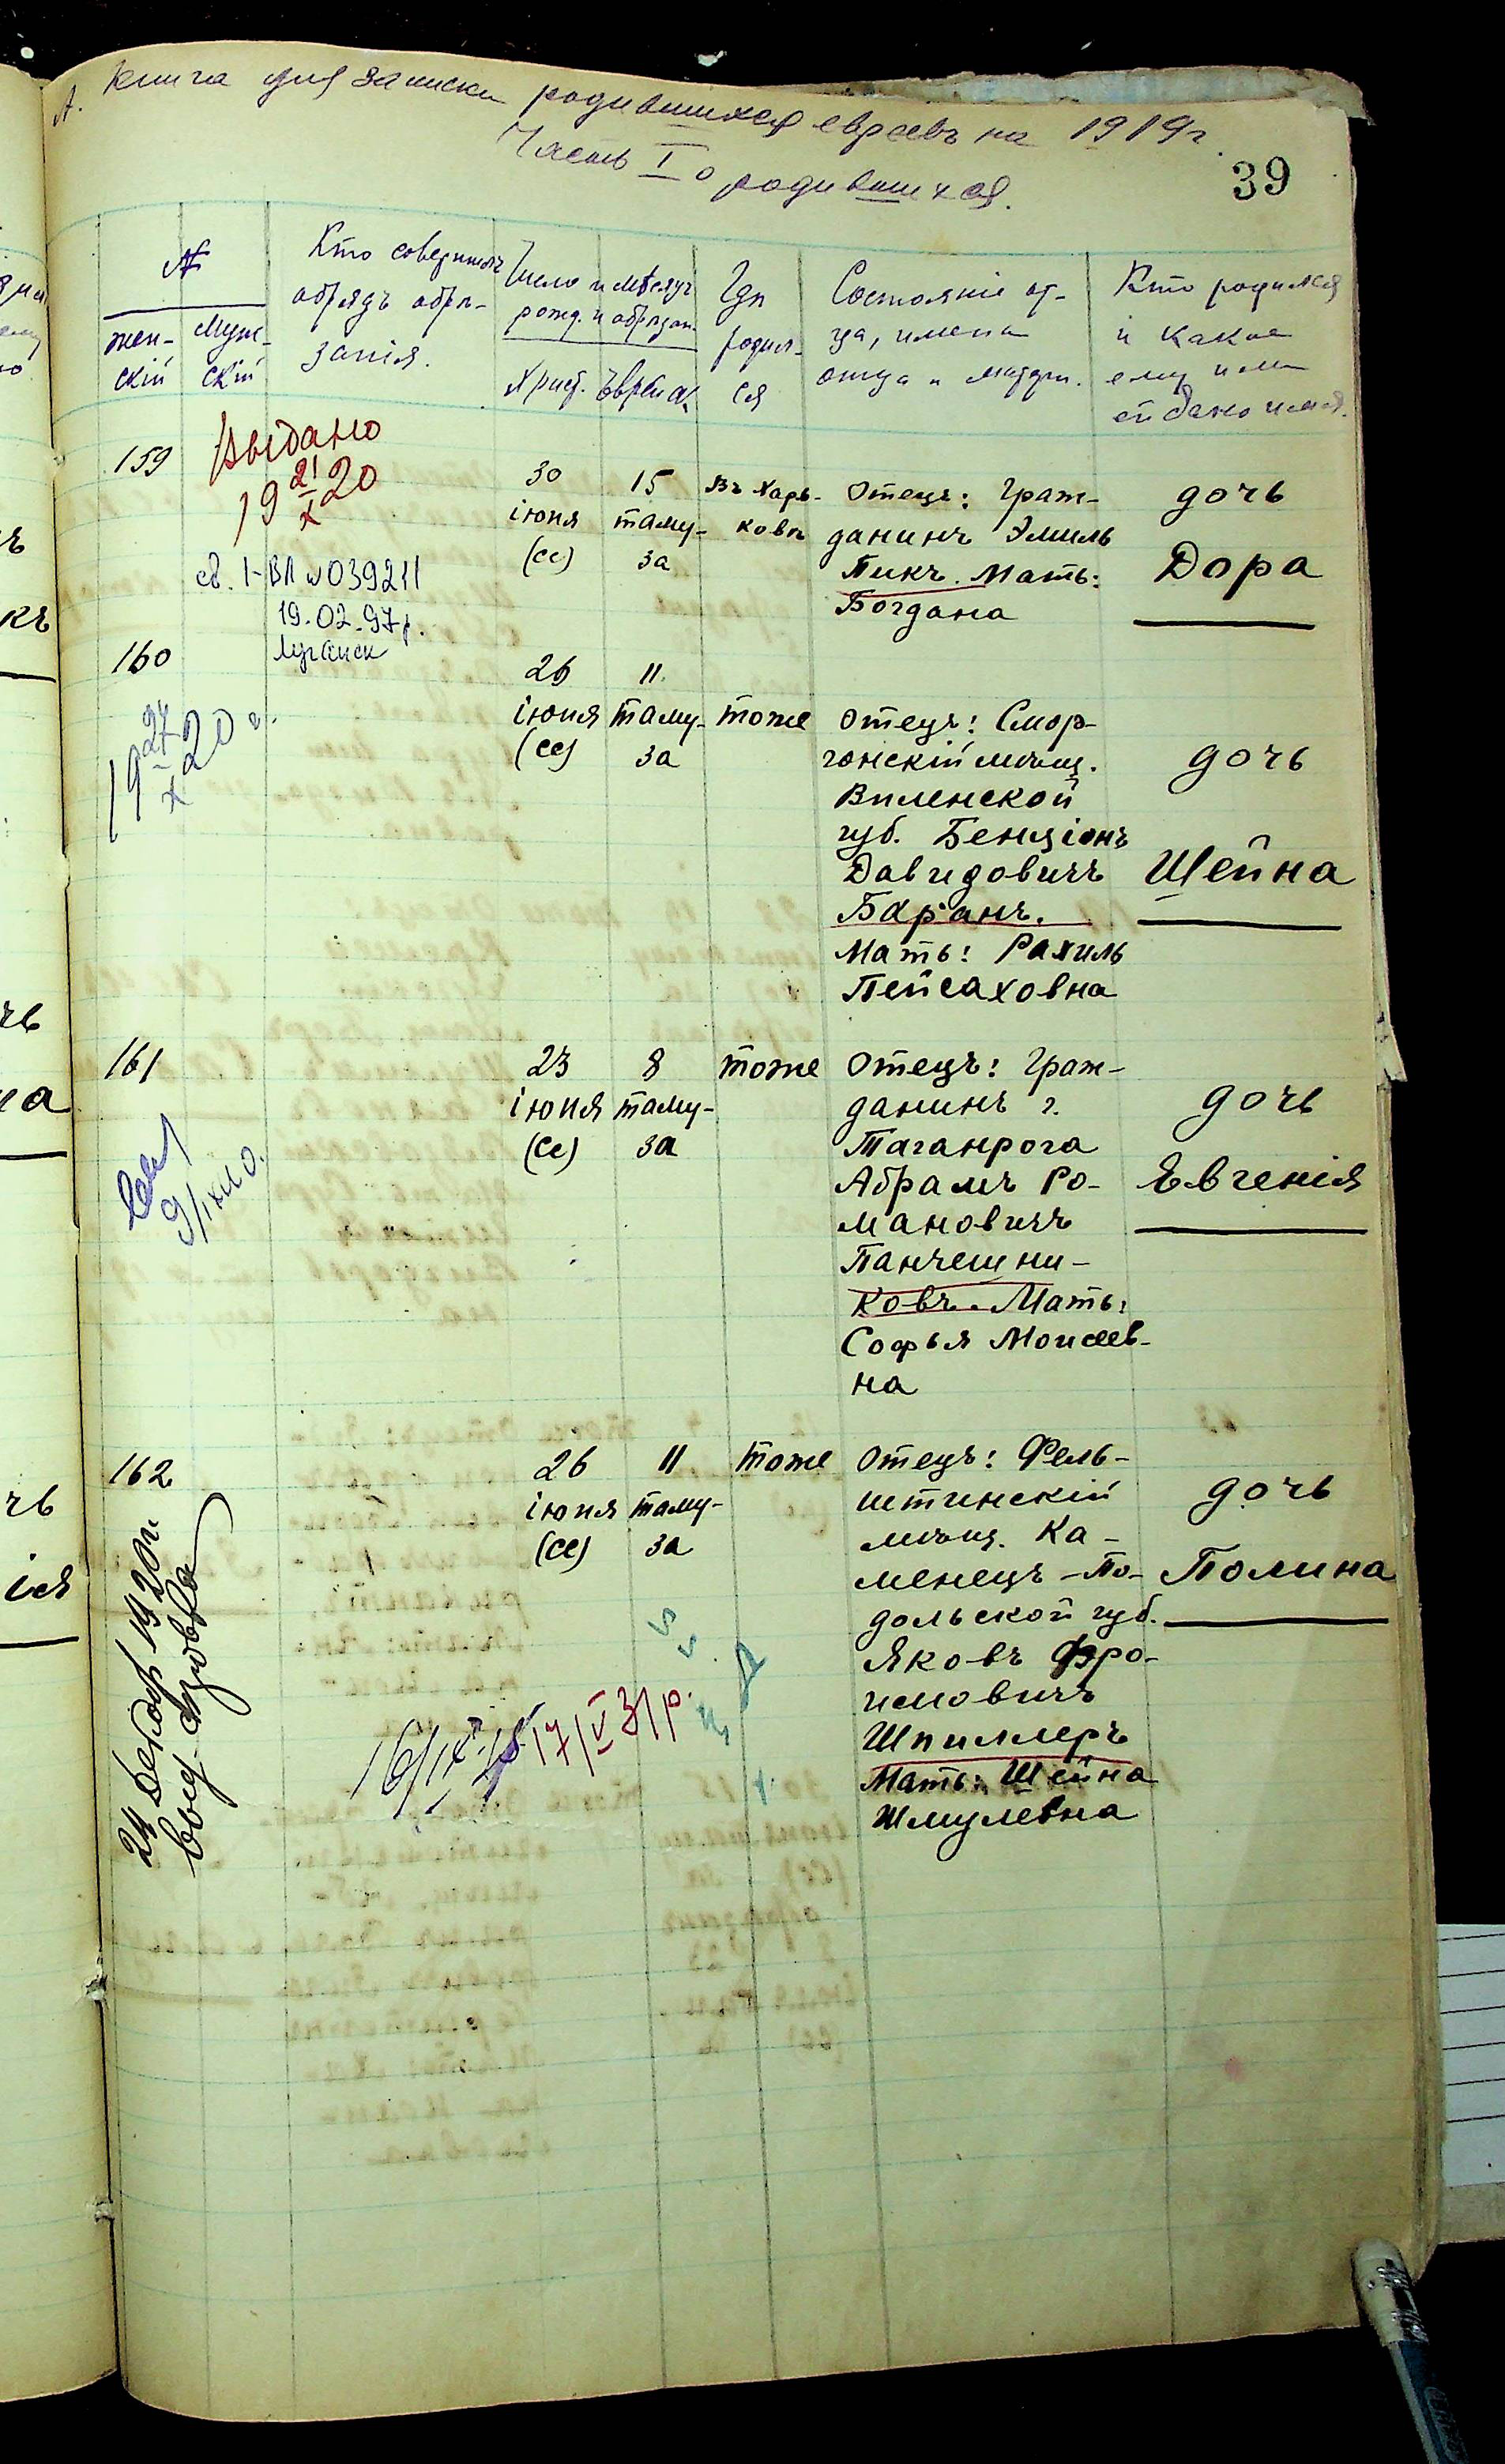 А. Книга для записки родившихся евреевъ на 1919 г.
Часть I о родившихся.
39
№
жен-
скій
Муж-
скій
Кто совершалъ
обрядъ обрѣ-
занія.
Число и мѣсяцъ
рожд. и обрѣзан.
Христ. Еврейск.
Гдѣ
родил-
ся
Состояніе от-
ца, имена
отца и матери.
Кто родился
и какое
ему или
ей дано имя.
159
Выдано
19 21/X 20
св. I-ВЛ № 039211
19.02.97р.
Луганск
30
іюня
(сс)
15
таму-
за
въ Харь-
ковѣ
Отецъ: Граж-
данинъ Эмиль
Пикъ. Мать:
Богдана
дочь
Дора
160
19 27/X 20 г.
26
іюня
(сс)
11
таму-
за
тоже
Отецъ: Смор-
гонскій мѣщ.
Виленской
губ. Бенціонъ
Давидовичъ
Баранъ.
Мать: Рахиль
Пейсаховна
дочь
Шейна
161
23
іюня
(сс)
8
таму-
за
тоже
Отецъ: Граж-
данинъ г.
Таганрога
Абрамъ Ро-
мановичъ
Панчешни-
ковъ. Мать:
Софья Моисеев-
на
дочь
Евгенія
162
24 1920г.
выд.
26
іюня
(сс)
11
таму-
за
тоже
Отецъ: Фель-
штинскій
мѣщ. Ка-
менецъ-По-
дольской губ.
Яковъ Фро-
имовичъ
Шпиллеръ
Мать: Шейна
Шмулевна
дочь
Полина
17/V 31 р.